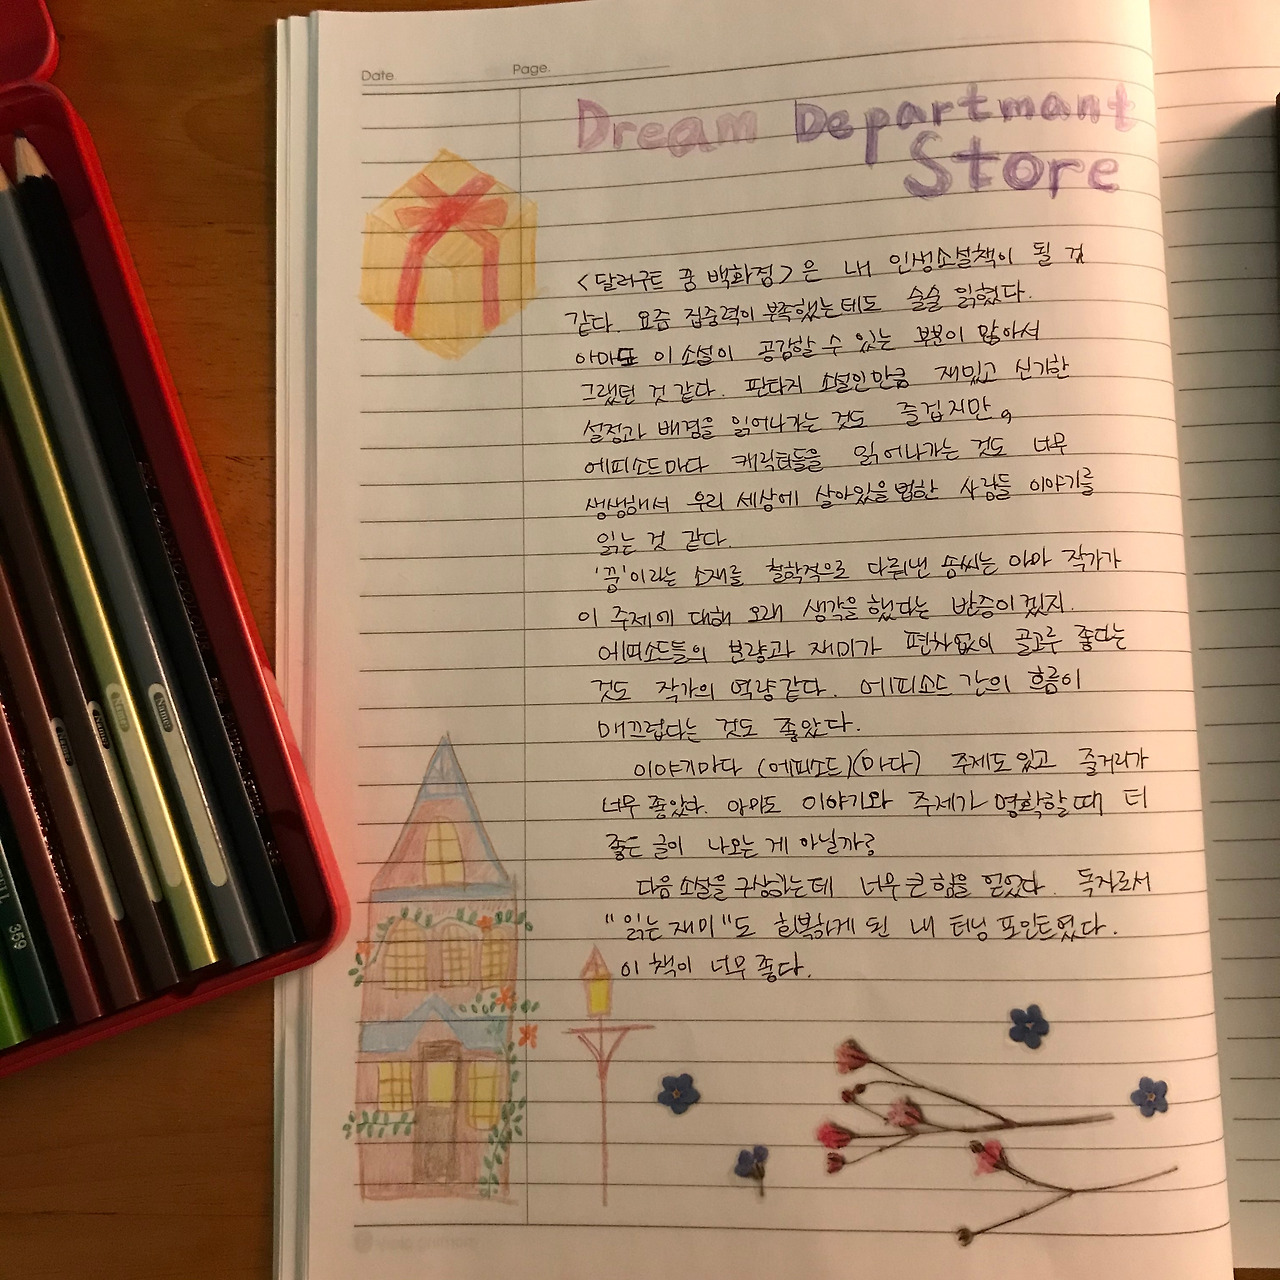 Date.
Page.
Dream Departmant
Store
<달러구트 꿈 백화점>은 내 인생소설책이 될 것
같다. 요즘 집중력이 부족했는데도 술술 읽혔다.
아마도 이 소설이 공감할 수 있는 부분이 많아서
그랬던 것 같다. 판타지 소설인만큼 재밌고 신기한
설정과 배경을 읽어나가는 것도 즐겁지만,
에피소드마다 캐릭터들을 읽어나가는 것도 너무
생생해서 우리 세상에 살아있을 법한 사람들 이야기를
읽는 것 같다.
'꿈'이라는 소재를 철학적으로 다뤄낸 솜씨는 아마 작가가
이 주제에 대해 오래 생각을 했다는 반증이겠지.
에피소드들의 분량과 재미가 편차없이 골고루 좋다는
것도 작가의 역량같다. 에피소드 간의 흐름이
매끄럽다는 것도 좋았다.
이야기마다 (에피소드)(마다) 주제도 있고 줄거리가
너무 좋았다. 아마도 이야기와 주제가 명확할 때 더
좋은 글이 나오는 게 아닐까?
다음 소설을 구상하는데 너무 큰 힘을 얻었다. 독자로서
"읽는 재미"도 회복하게 된 내 터닝 포인트였다.
이 책이 너무 좋다.
Name
Name
Name
Name
359